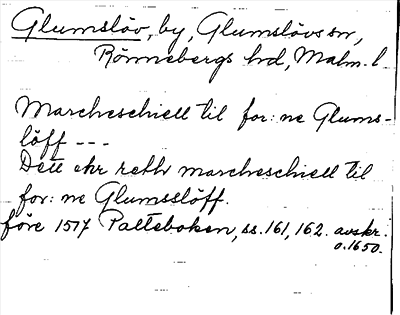 Glumslöv, by, Glumslövs sn,
Rönnebergs hd, Malm. l
Marcheschiell til for: ne Glums-
löff ---
Dett ehr reth marcheschiell til
for: ne Glumsslöff.
före 1517 Palteboken, ss. 161, 162. avskr.
o. 1650.